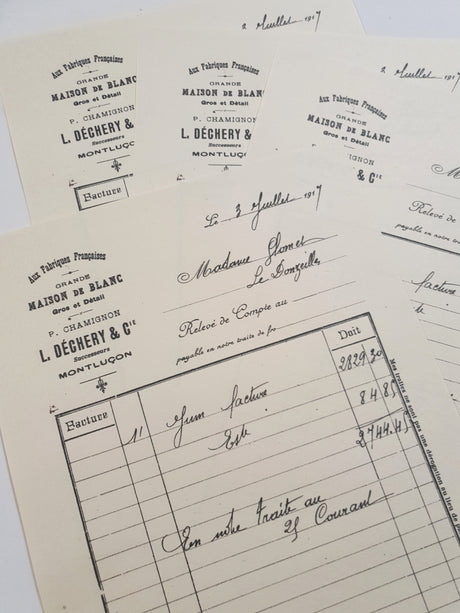 2 Juillet 1917
Aux Fabriques Françaises
GRANDE
MAISON DE BLANC
Gros et Détail
P. CHAMIGNON
L. DÉCHERY &
Successeurs
MONTLUÇON
Facture
Aux Fabriques Françaises
GRANDE
MAISON DE BLANC
Gros et Détail
P. CHAMIGN
L. DÉCHERY &
Successeurs
MONTLUÇ
2 Juillet 1917
Aux Fabriques Françaises
GRANDE
MAISON DE BLANC
Gros et Détail
IGNON
& Cie
Relevé de
payable en notre
facture
Le 3 Juillet 1917
Aux Fabriques Françaises
GRANDE
MAISON DE BLANC
Gros et Détail
P. CHAMIGNON
L. DÉCHERY & Cie
Successeurs
MONTLUÇON
Madame
Le Donzeilles
Relevé de Compte au
payable en notre traite de frs
Facture
Doit
11 facture 2829,30
Esle 84 85
2744.45
En notre traite au
25 Courant
Mes traites ne sont pas une dérogation au lieu de